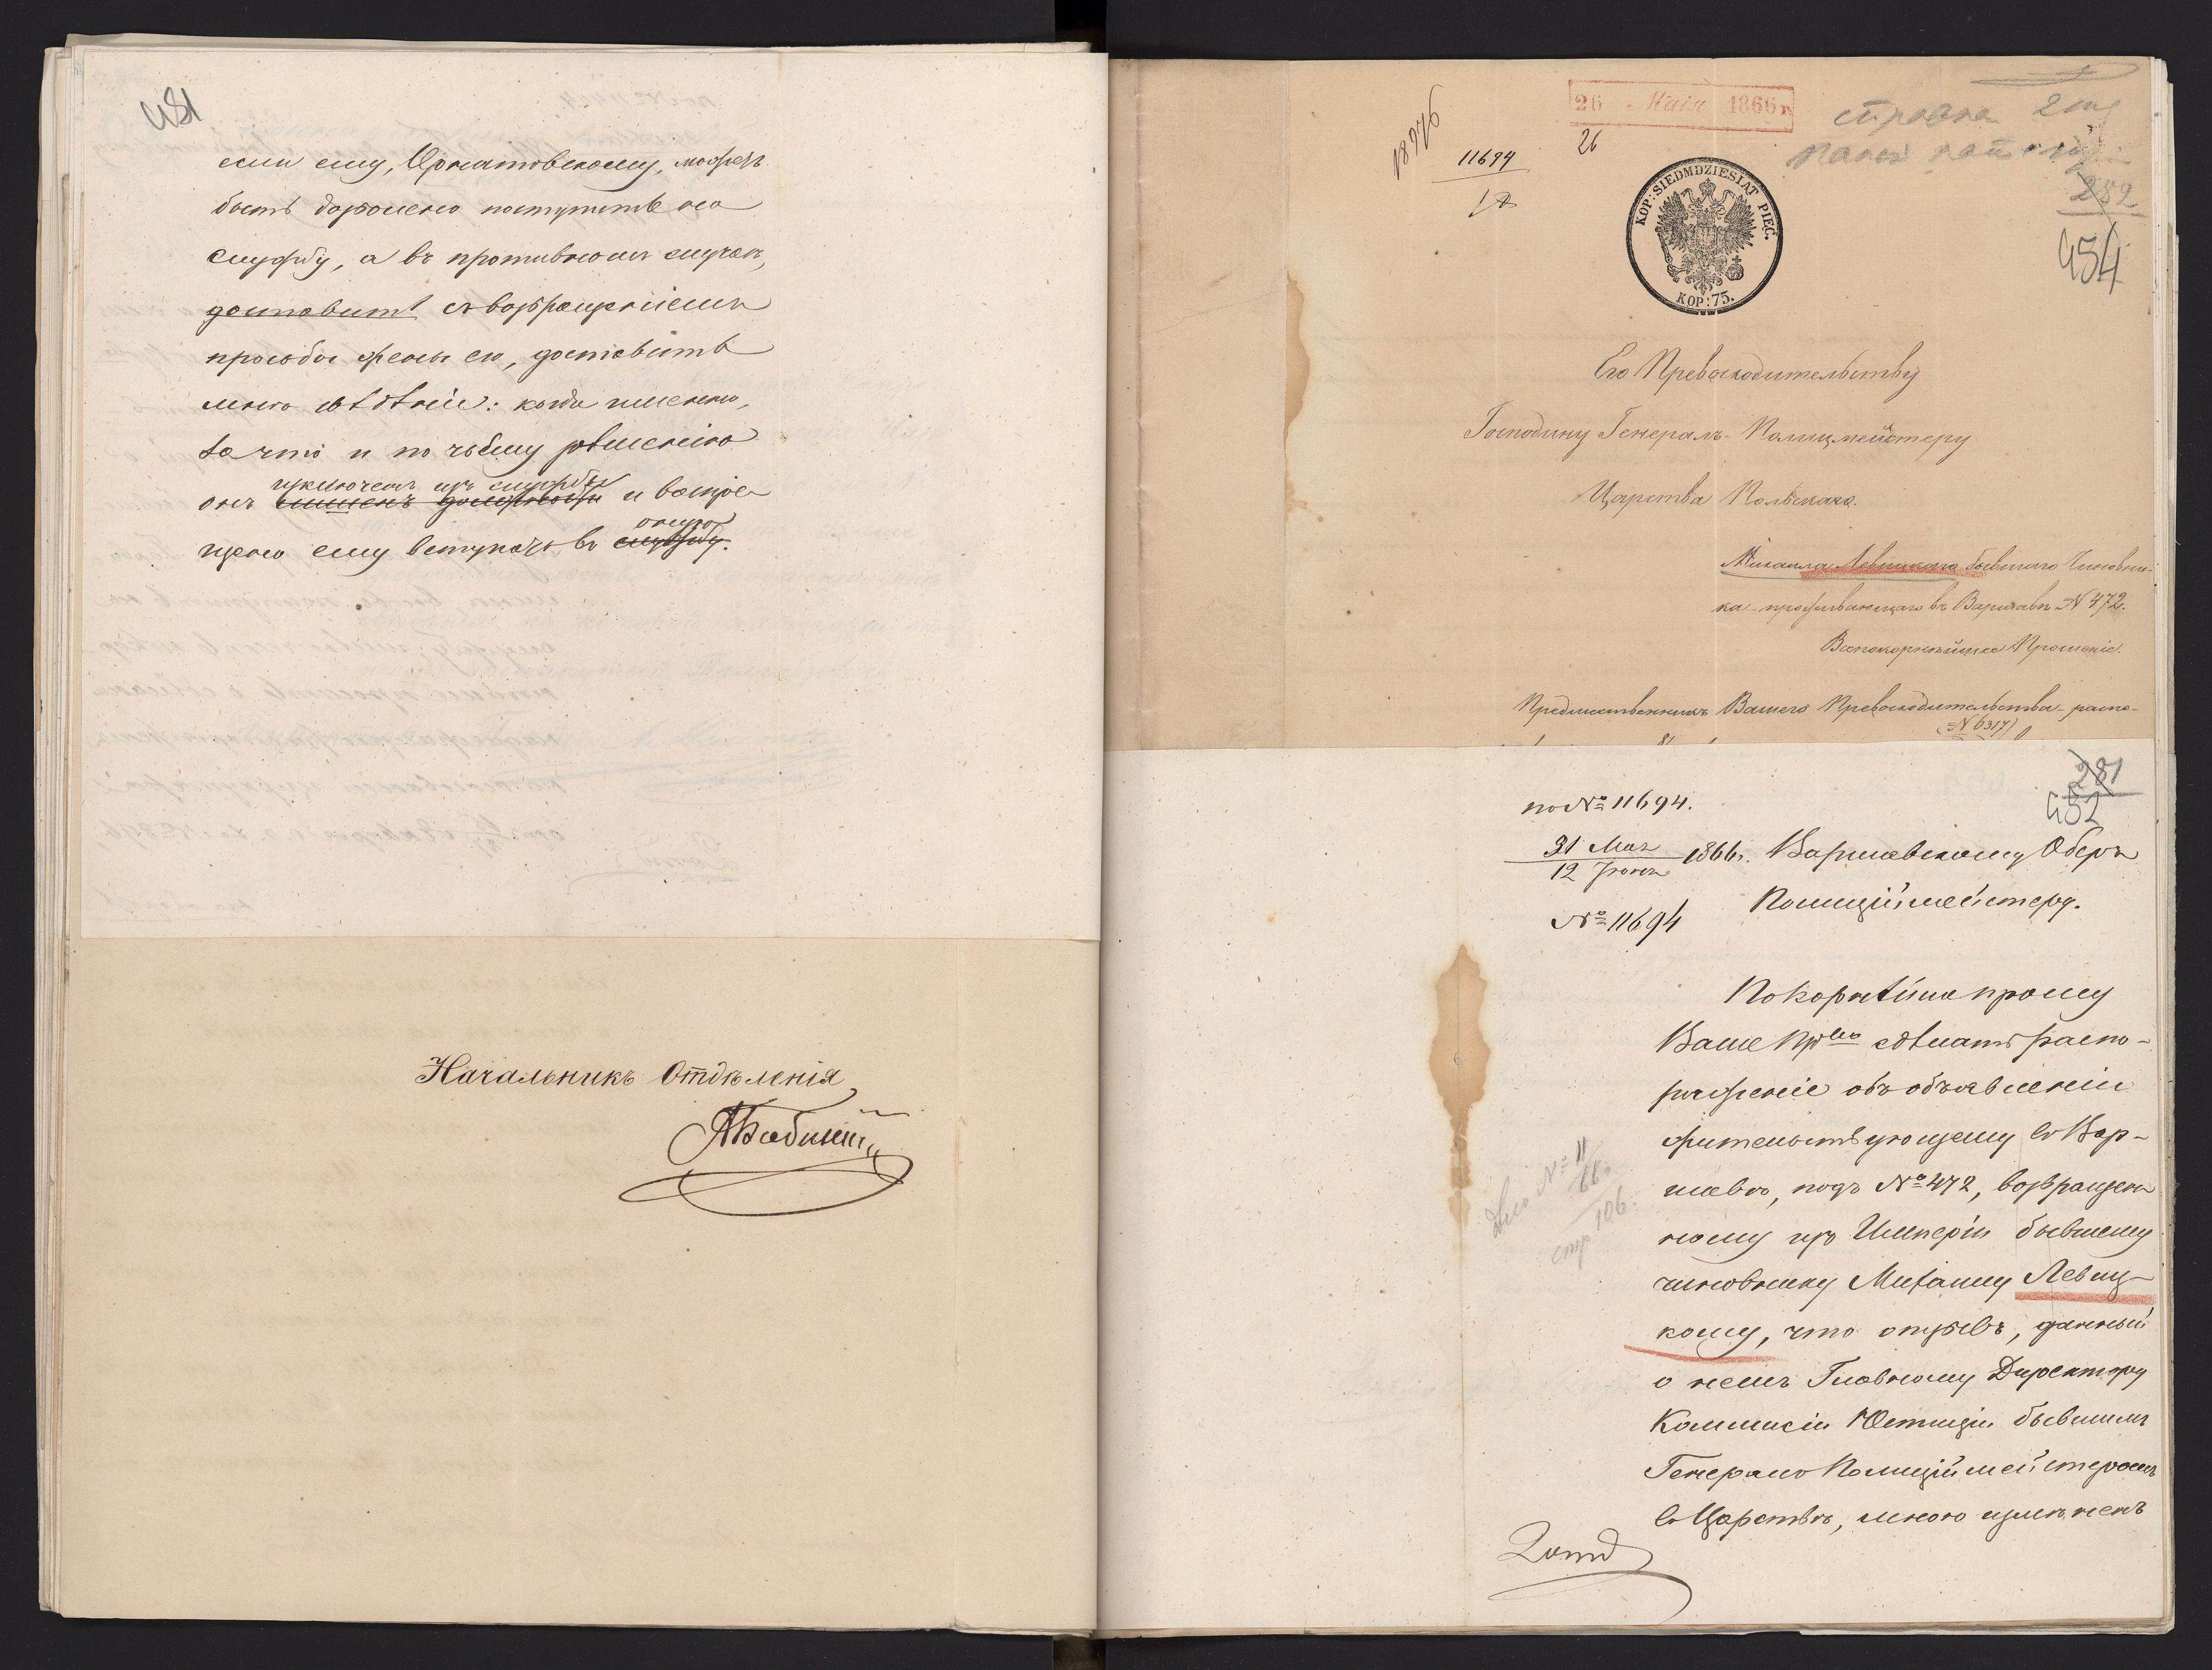 481
если ему, Орнатовскому, можетъ
быть дозволено поступить на
службу, а въ противномъ случаѣ,
доставить съ возвращеніемъ
прозьбы жены его, доставить
мнѣ свѣдѣніе: когда именно,
за что и по чьему рѣшенію
исключенъ изъ службы
онъ лишенъ должности и воспре-
оную
щено ему вступать въ службу.
Начальникъ Отдѣленія
26 Маія 1866 г.
26
18976
11694
справка 2 отд
282
484
KOP: SIEDMDZIESIĄT PIĘĆ.
KOP: 75.
Его Превосходительству
Господину Генералъ-Полицмейстеру
Царства Польскаго.
Михаила Левицкаго бывшаго Чиновни-
ка проживающаго въ Варшавѣ N 472.
Всепокорнѣйшее Прошеніе.
Предшественникъ Вашего Превосходительства распо-
(N 6317)
281
482
по № 11694.
31 Мая
12 Іюня
1866 г. Варшавскому Оберъ
Полиціймейстеру.
№ 11694
Покорнѣйше прошу
Ваше Пр-во сдѣлать распо-
ряженіе объ объявленіи
жительствующему въ Вар-
шавѣ, подъ № 472, возвращен
ному изъ Имперіи бывшему
чиновнику Михаилу Левиц-
кому, что отзывъ, данный
о немъ Главному Директору
Коммисіи Юстиціи бывшимъ
Генералъ Полиціймейстеромъ
въ Царствѣ, мною измѣненъ
Дѣло № 11
66 г.
стр 106.